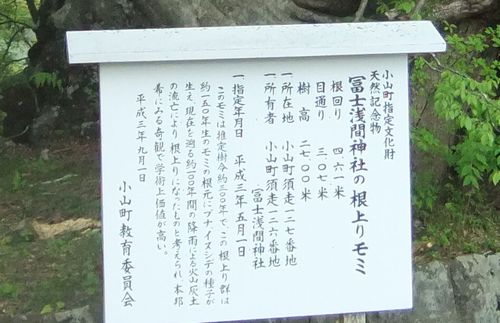 小山町指定文化財
天然記念物
冨士浅間神社の根上りモミ
根回り 四・六一米
目通り 三・〇七米
樹高 二七・〇〇米
一所在地 小山町須走一二七番地
一所有者 小山町須走一二六番地
冨士浅間神社
一指定年月日 平成三年五月一日
このモミは推定樹令約三〇〇年で、この根上り群は
約一五〇年生のモミの根元にブナイヌシデの種子が
生え、現在を遡る約一〇〇年間の降雨による火山灰土
の流亡により根上りになったものと考えられ、本邦
希にみる奇観で学術上価値が高い。
平成三年九月一日
小山町教育委員会